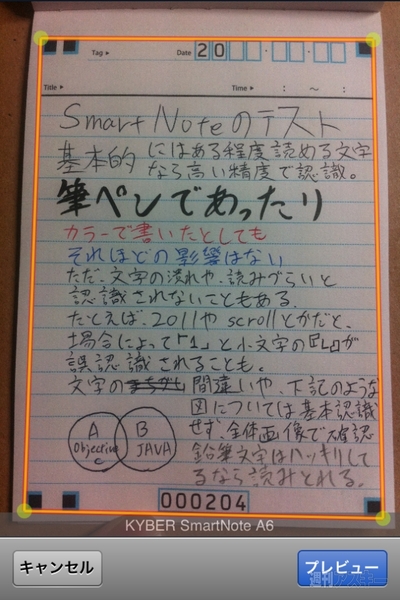 Tag▶ Date 20
Title▶ Time▶ : ～ :
SmartNoteのテスト
基本的 にはある程度読める文字
なら高い精度で認識。
筆ペンであったり
カラーで書いたとしても
それほどの影響はない
ただ、文字の潰れや、読みづらいと
認識されないこともある。
たとえば、2011や scrollとかだと、
場合によって「1」と小文字の『L』が
誤認識されることも。
文字の 間違いや、下記のような
図については基本認識
せず、全体画像で確認
鉛筆文字はハッキリして
るなら読みとれる。
A
Objective
C
B
JAVA
000204
KYBER SmartNote A6
キャンセル
プレビュー
週刊アスキー